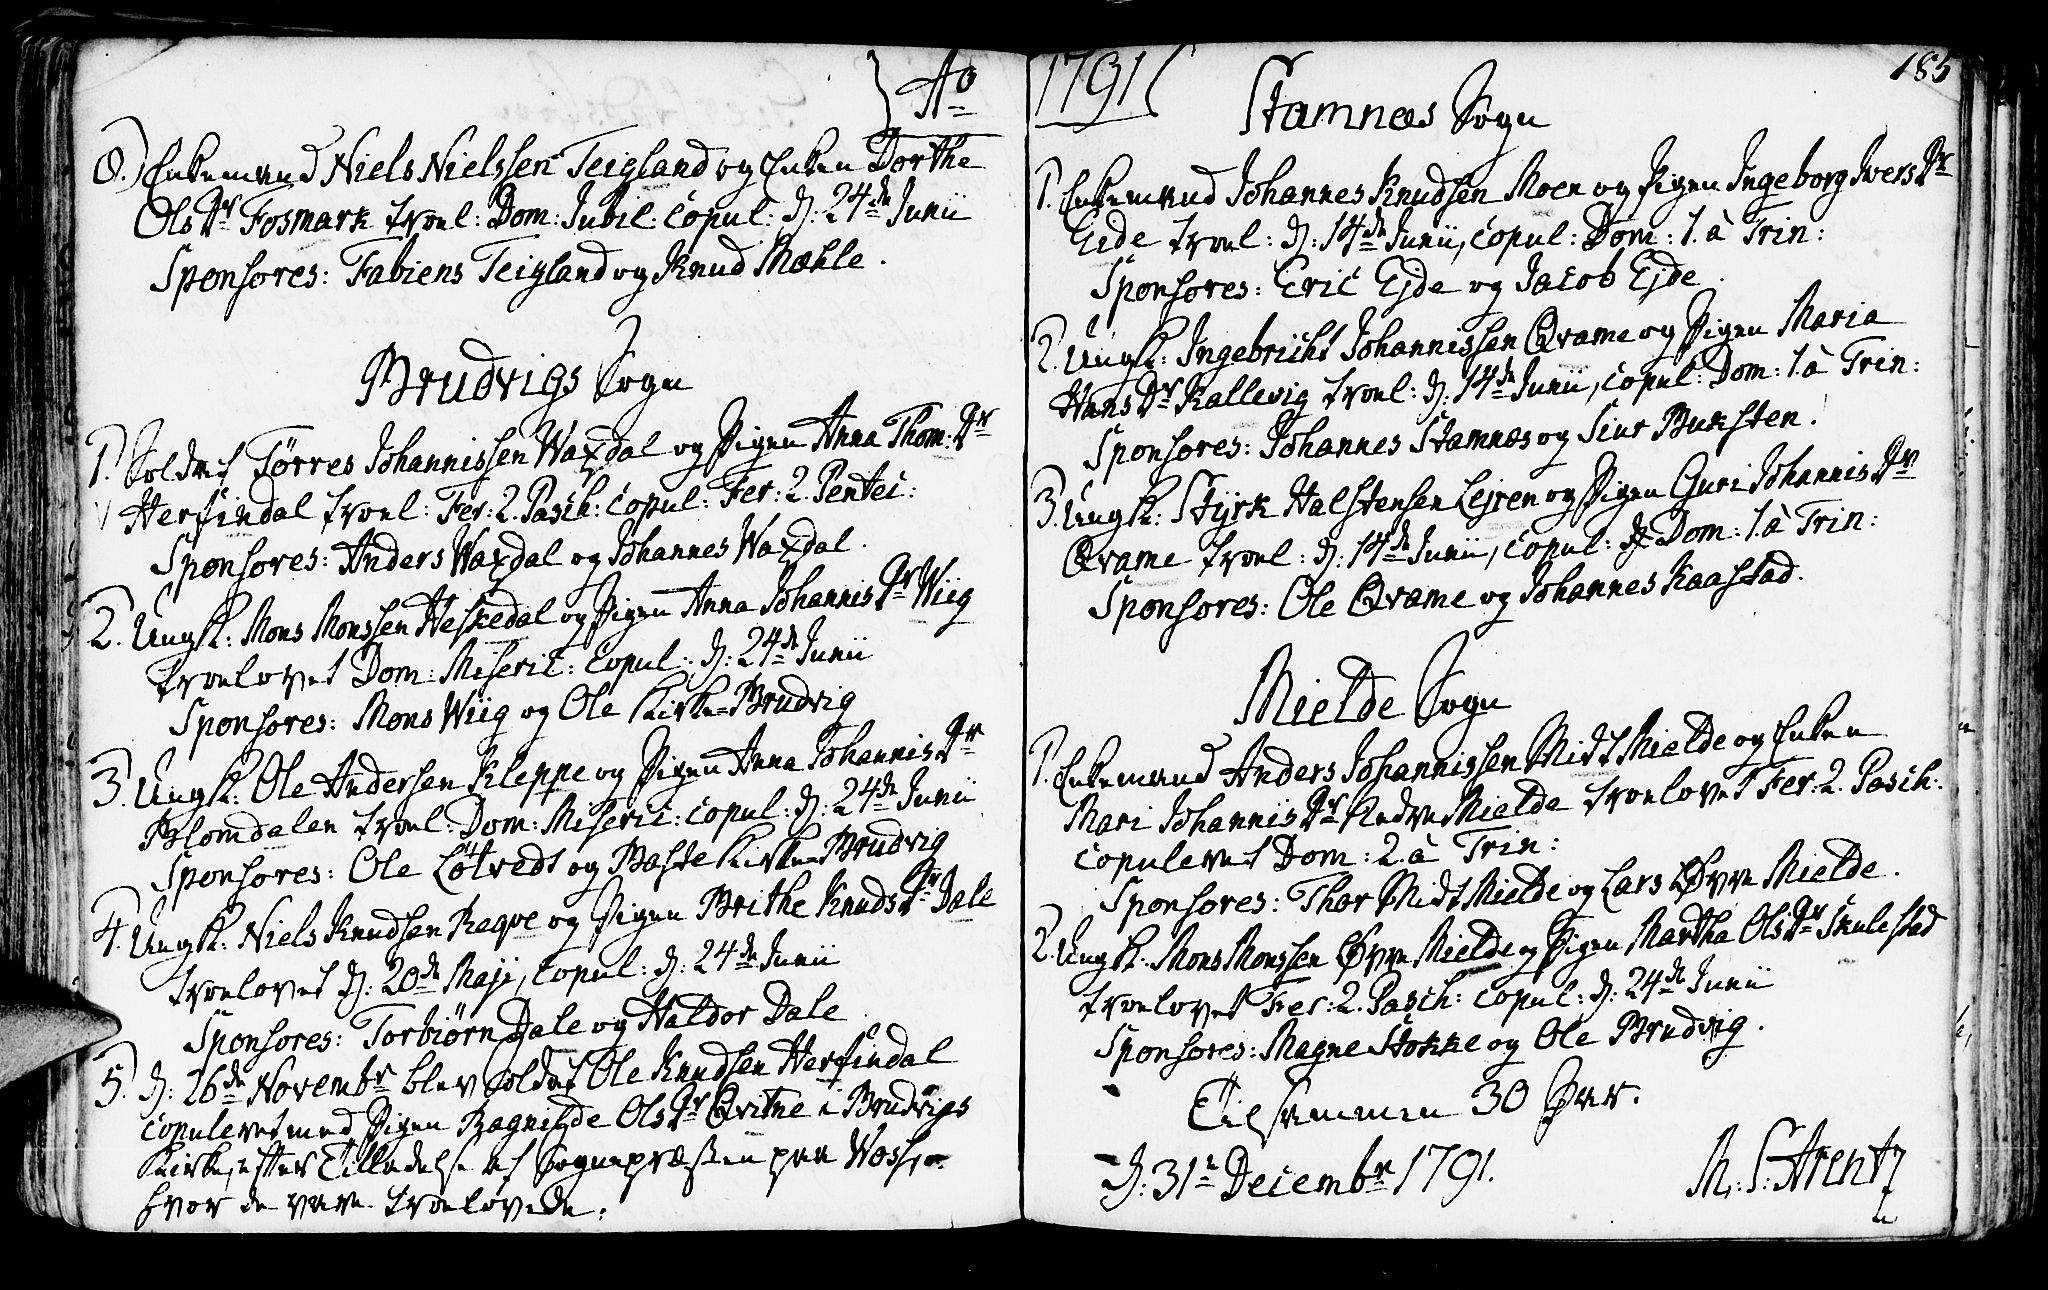 Ao
8.) Enkemand Niels Nielssen Teigland og Enken Dorthe
Ols Dr Fosmark trol: Dom: Jubil: copul: d: 24de Junii
Sponsores: Fabiens Teigland og Knud Mæhle.
Brudvigs Sogn
1. Soldat Tørres Johannissen Waxdal og Pigen Anna Thom: Dr
Herfindal trol: Fer: 2. Pasch: copul: Fer: 2. Pentec:
Sponsores: Anders Waxdal og Johannes Waxdal.
2. Ungk: Mons Monssen Heskedal og Pigen Anna Johannis Dr Wiig
trolovet Dom: Miseric: copul: d: 24de Junii
Sponsores: Mons Wiig og Ole Kirke-Brudvig
3. Ungk: Ole Andersen Kleppe og Pigen Anna Johannis Dr
Blomdalen trol: Dom: Miseric: copul: d: 24de Junii
Sponsores: Ole Løtvedt og Baste Kirke-Brudvig
4. Ungk: Niels Knudsen Reqve og Pigen Brithe Knuds Dr Dale
trolovet d: 20de Maji, copul: d: 24de Junii
Sponsores: Torbiørn Dale og Haldor Dale
5. d: 26de Novembr blev Soldat Ole Knudsen Herfindal
copuleret med Pigen Ragnilde Ols Dr Qvitne i Brudvigs
Kirke, efter Tilladelse af Sognepræsten paa Woss,
hvor de vare trolovede.
1791
185
Stamnæs Sogn
1. Enkemand Johannes Knudsen Moen og Pigen Ingeborg Ivers Dr
Eide trol: d: 14de Junii, copul: Dom: 1. à Trin:
Sponsores: Eric Ejde og Jacob Ejde.
2. Ungk: Ingebricht Johannissen Qvame og Pigen Maria
Hans Dr Kallevig trol: d: 14de Junii, copul: Dom: 1. à Trin:
Sponsores: Johannes Stamnæs og Siur Buksten.
3. Ungk: Styrk Halstensen Lejren og Pigen Guri Johannis Dr
Qvame trol: d: 14de Junii, copul: Dom: 1. à Trin:
Sponsores: Ole Qvame og Johannes Kaastad.
Mielde Sogn
1. Enkemand Anders Johannissen Midt Mielde og Enken
Mari Johannis Dr Nedre Mielde trolovet Fer: 2. Pasch:
copuleret Dom: 2. à Trin:
Sponsores: Thor Midt Mielde og Lars Øvre Mielde.
2. Ungk: Mons Monssen Øvre Mielde og Pigen Martha Ols Dr Skulestad
trolovet Fer: 2. Pasch: copul: d: 24de Junii
Sponsores: Magne Stokke og Ole Brudvig.
Tilsammen 30 Par.
d: 31te Decembr 1791.
M: S: Arentz